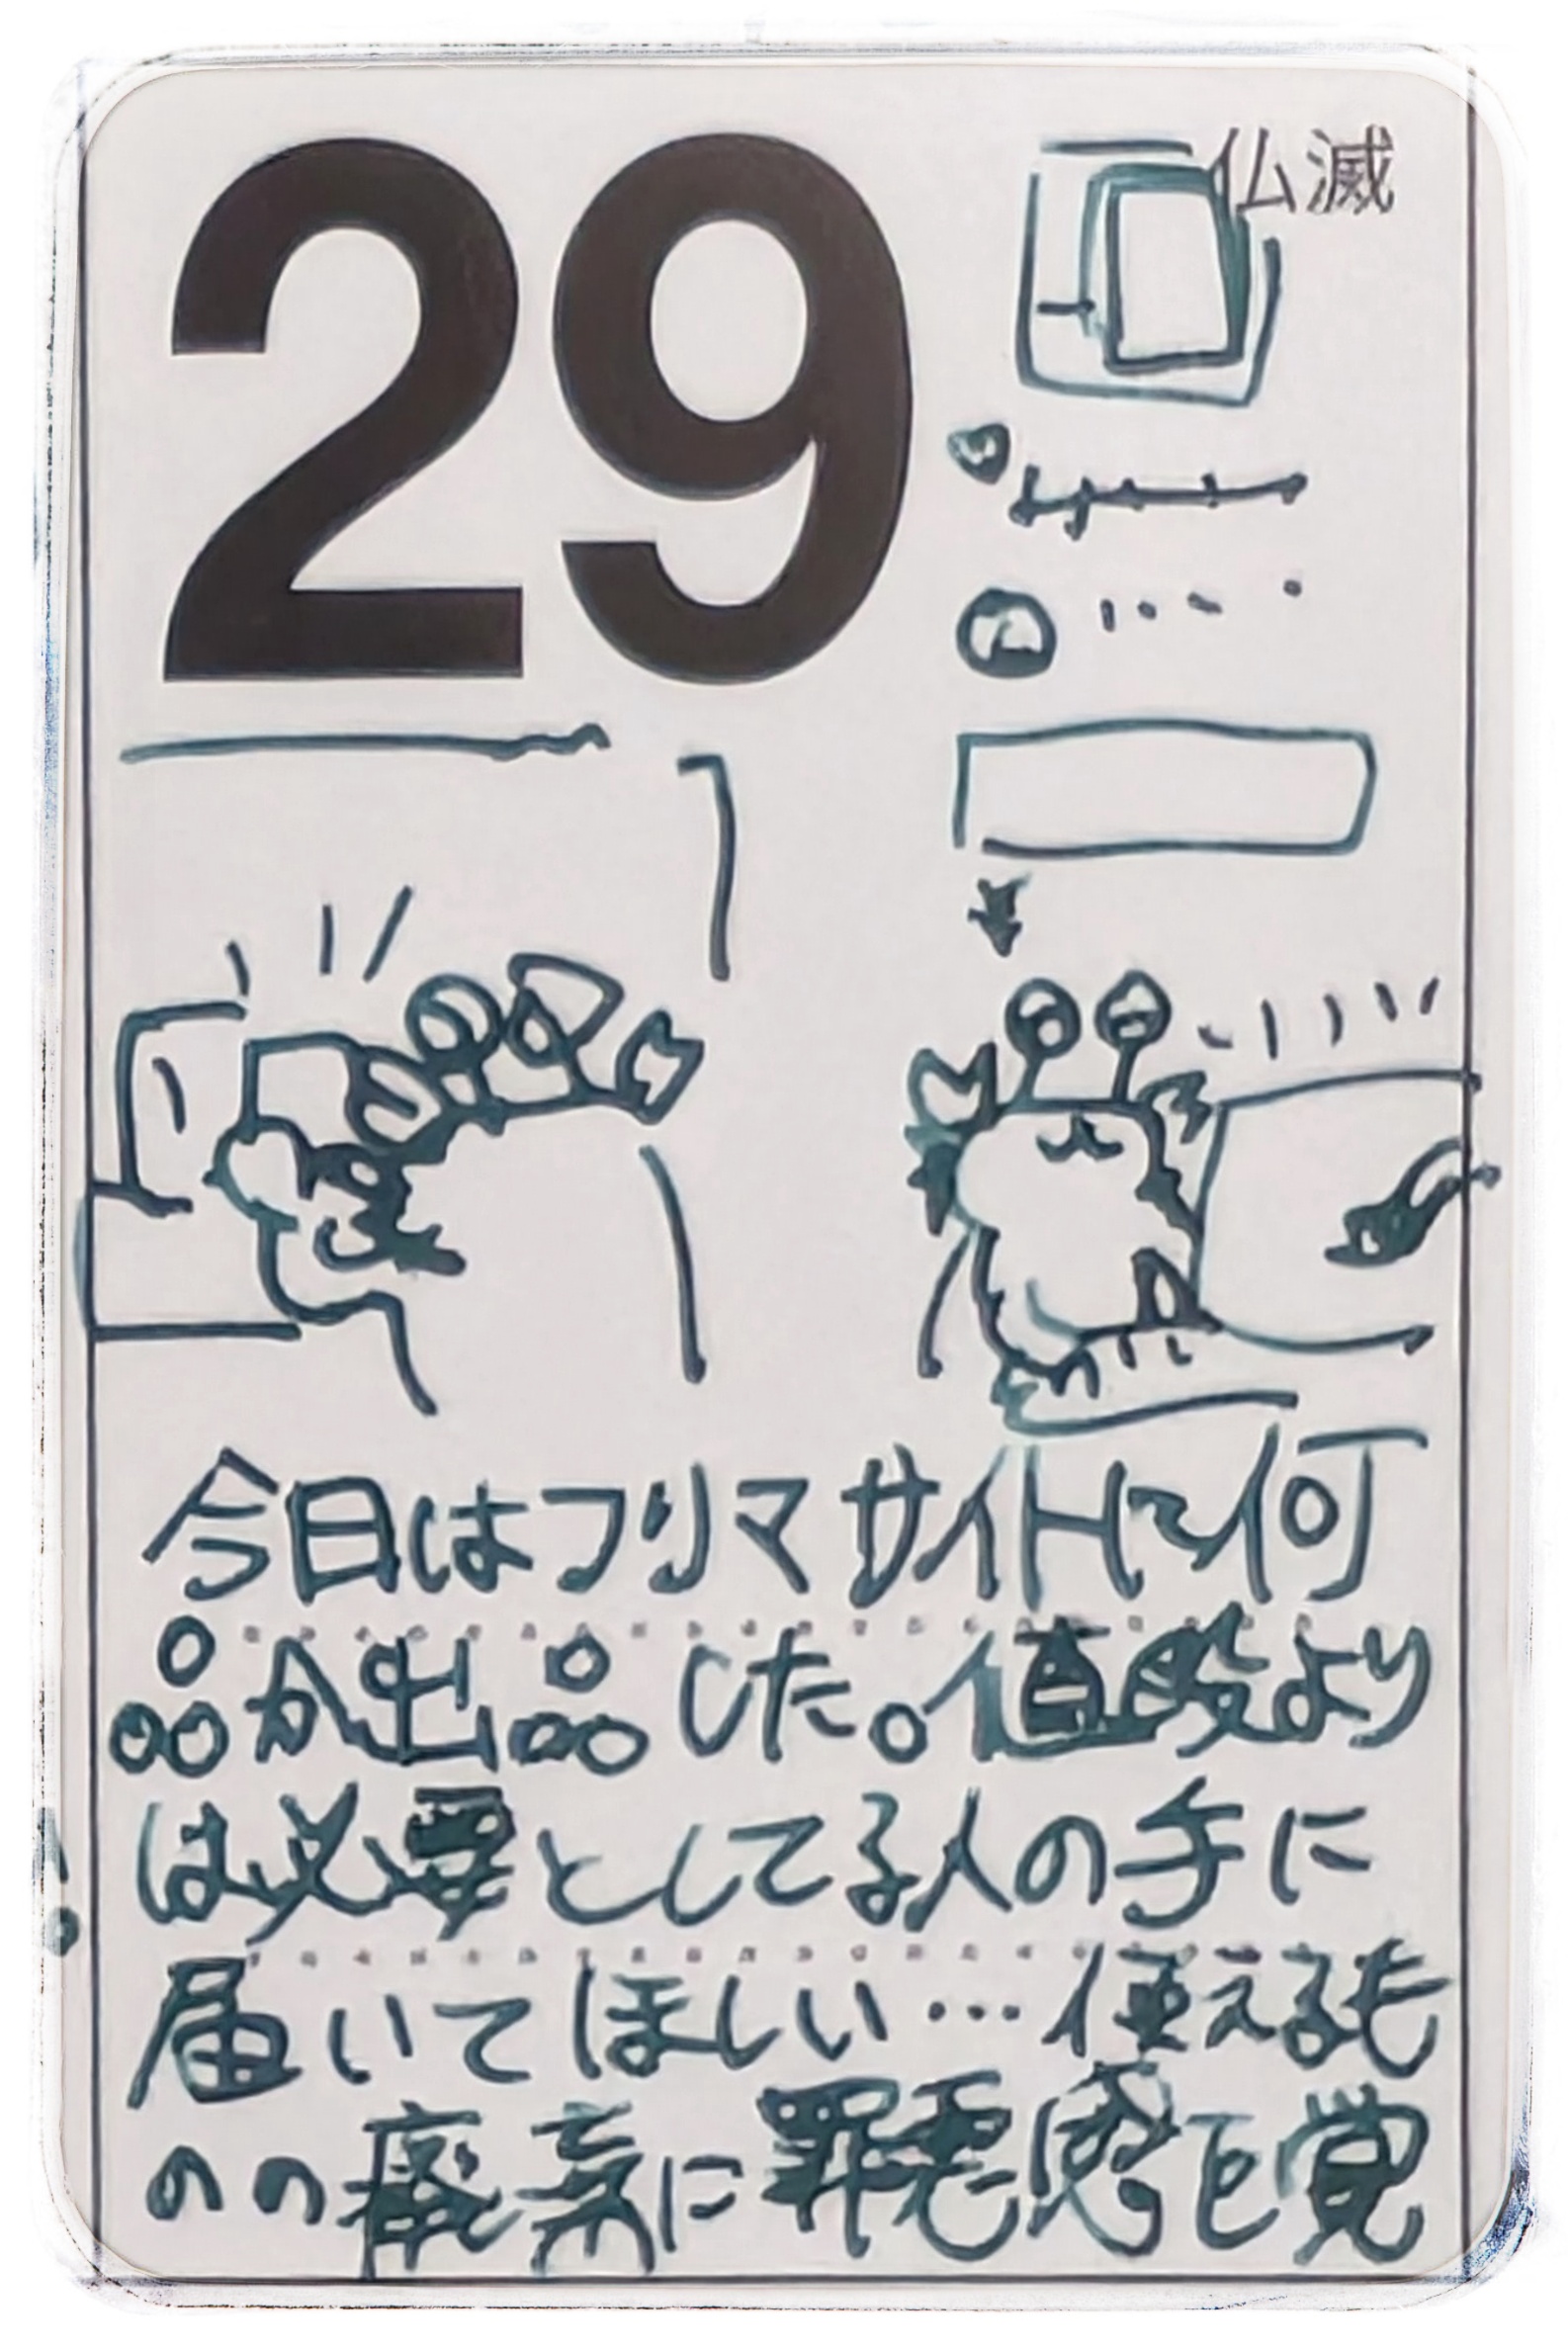 29
仏滅
今日はフリマサイトに何
品か出品した。値段より
は必要としてる人の手に
届いてほしい…使えるも
のの廃棄に罪悪感を覚